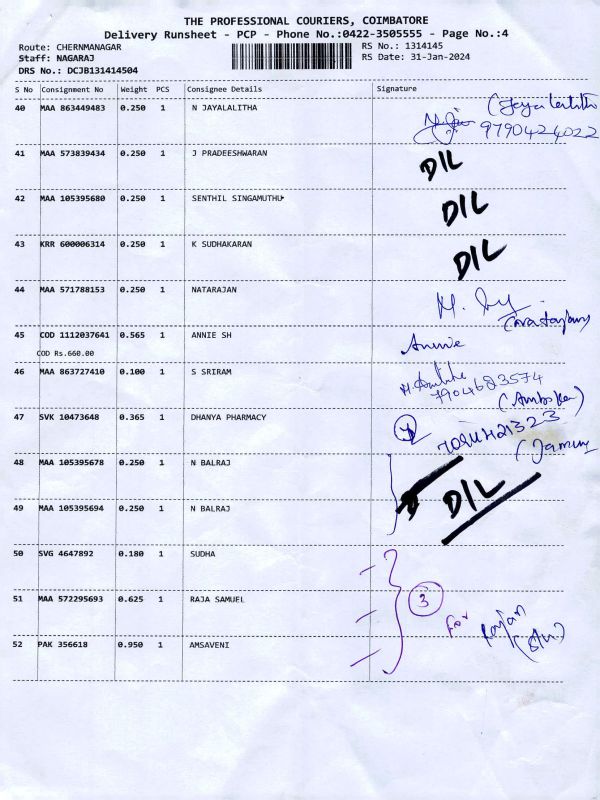 THE PROFESSIONAL COURIERS, COIMBATORE
Delivery Runsheet - PCP - Phone No.:0422-3505555 - Page No.:4
Route: CHERNMANAGAR RS No.: 1314145
Staff: NAGARAJ RS Date: 31-Jan-2024
DRS No.: DCJB131414504
S No Consignment No Weight PCS Consignee Details Signature
40 MAA 863449483 0.250 1 N JAYALALITHA
9790424022
41 MAA 573839434 0.250 1 J PRADEESHWARAN D/L
42 MAA 105395680 0.250 1 SENTHIL SINGAMUTHU D/L
43 KRR 600006314 0.250 1 K SUDHAKARAN D/L
44 MAA 571788153 0.250 1 NATARAJAN
45 COD 1112037641 0.565 1 ANNIE SH Annie
COD Rs.660.00
46 MAA 863727410 0.100 1 S SRIRAM
7904683574
47 SVK 10473648 0.365 1 DHANYA PHARMACY
48 MAA 105395678 0.250 1 N BALRAJ
D/L
49 MAA 105395694 0.250 1 N BALRAJ
50 SVG 4647892 0.180 1 SUDHA
51 MAA 572295693 0.625 1 RAJA SAMUEL 3 For
52 PAK 356618 0.950 1 AMSAVENI